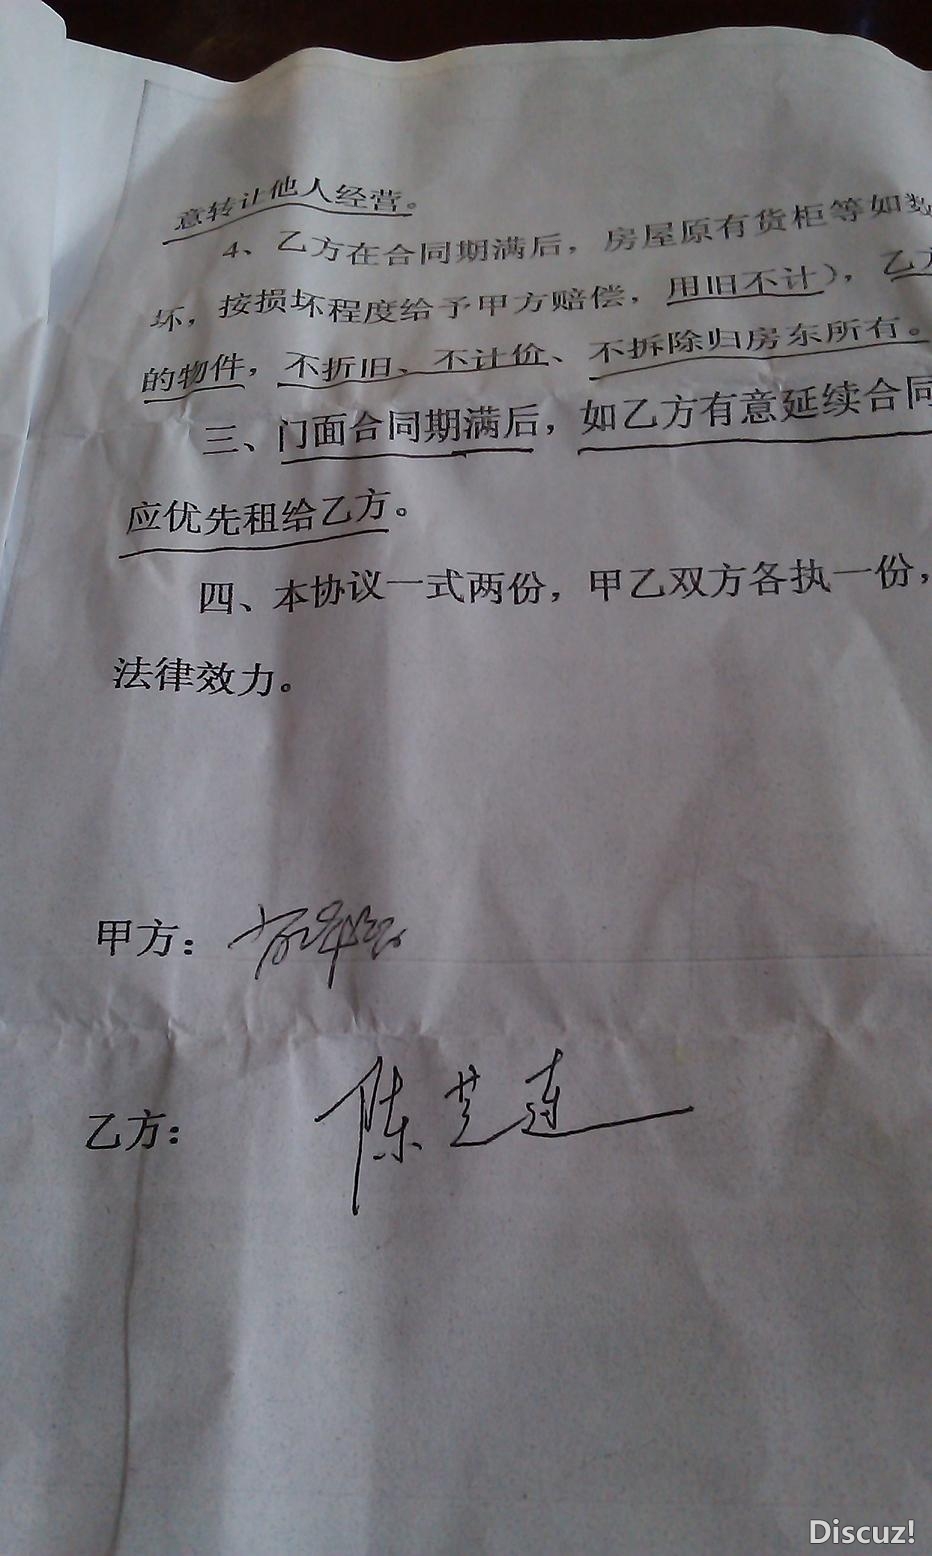 意转让他人经营。
4、乙方在合同期满后，房屋原有货柜等如数
坏，按损坏程度给予甲方赔偿，用旧不计），乙方
的物件，不折旧、不计价、不拆除归房东所有。
三、门面合同期满后，如乙方有意延续合同
应优先租给乙方。
四、本协议一式两份，甲乙双方各执一份，
法律效力。
甲方：
乙方： 陈芝连
Discuz!